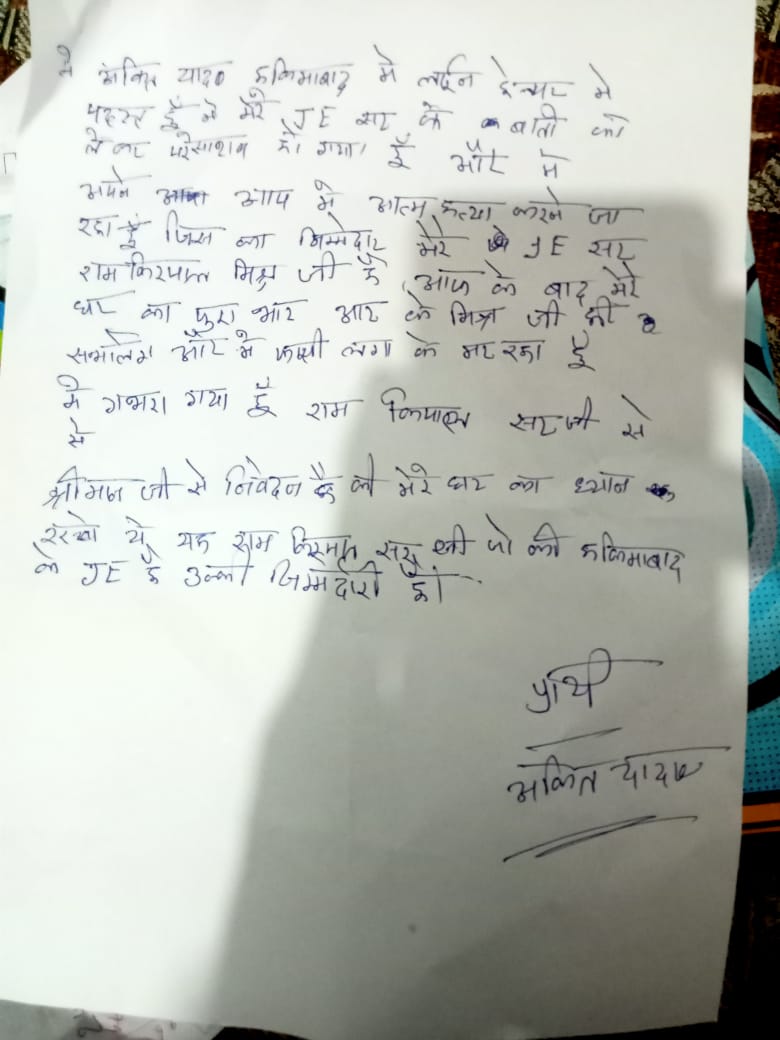 मै अंकित यादव हकिमाबाद मे लाईन हेल्पर मे
पदस्त हूँ मे मेरे JE सर के बातो को
लेकर परेसाशन हो गया हूँ और मे
अपने आप मे आत्म हत्या करने जा
रहा हूँ जिस का जिम्मेदार मेरे JE सर
राम किरपाल मिश्र जी है, आज के बाद मेरे
घर का पुरा भार आर के मिश्र जी ही
सभालेगे और मे फासी लगा के मर रहा हूँ
मे गभरा गया हूँ राम किपाल सर जी से
से
श्रीमान जी से निवेदन है की मेरे घर का ध्यान
रखे ये यह राम किरपाल सर जी जो की हकिमाबाद
के JE है उनकी जिम्मेदारी है।
प्रार्थी
अंकित यादव